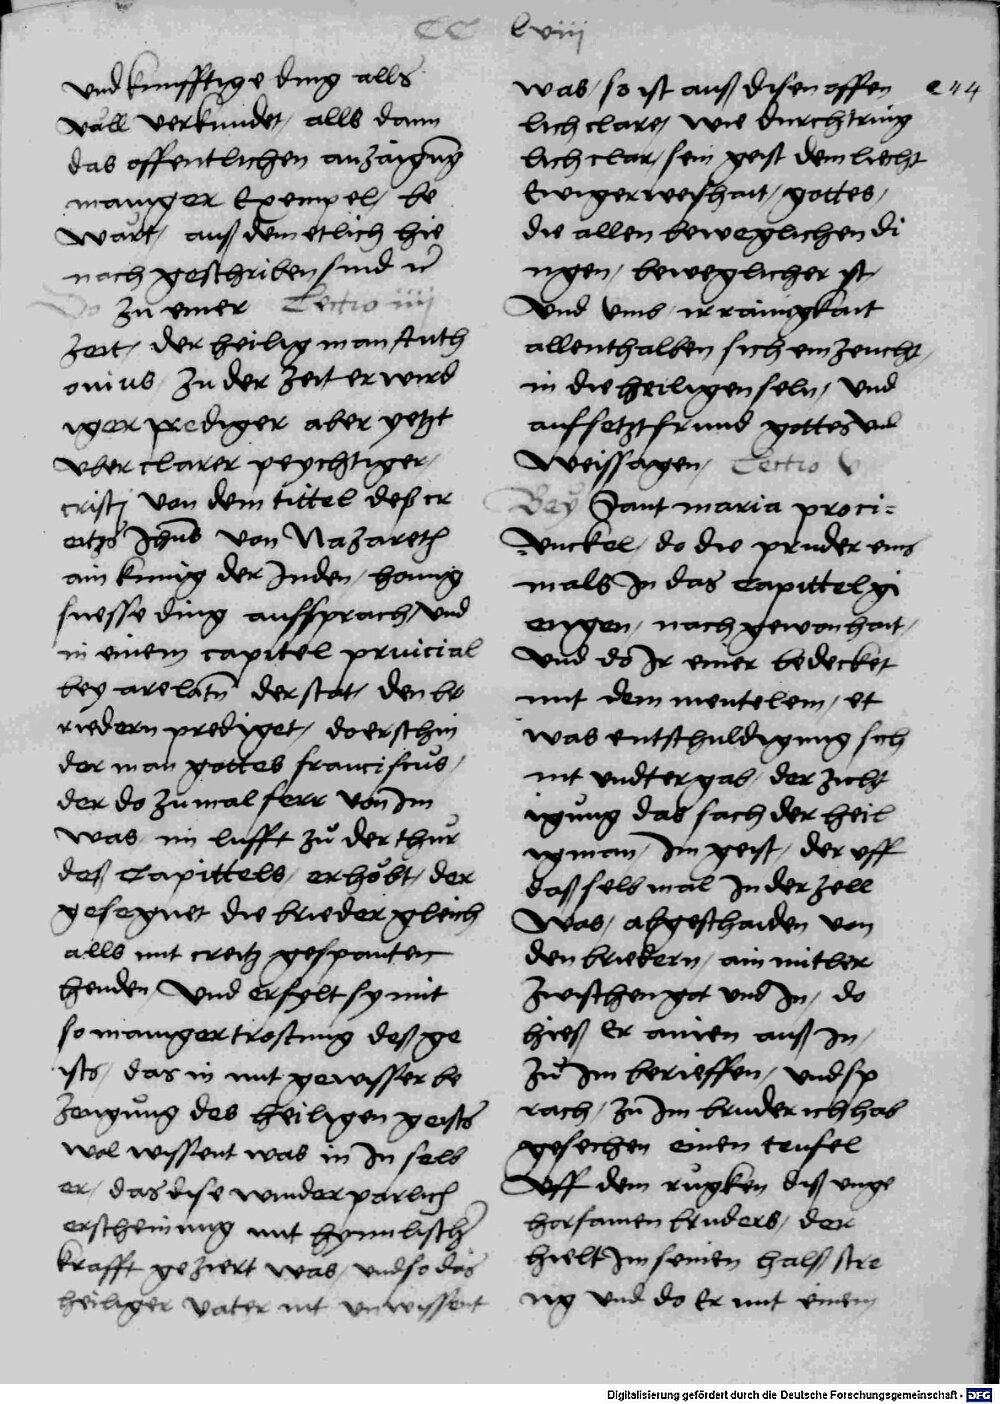 CC lviii
vnd kunfftige ding alls
vall verkundet / alls dann
das offentlichen anzaigung
maniger Exempel / be
wart / auß dem etlich hie
nach geschriben sind
Do zu einer Lectio iiij
zeit / der heilig man Anth
onius / zu der zeit er wird
iger prediger aber yetzt
vber clarer peychtiger /
cristj von dem tittel deß cr
eitzs Jhus von Nazareth
ain kunig der Juden / honnig
suesse ding aufsprach / vnd
in einem capitel
bey arelatn der stat / den br
riedern prediget / do erschin
der man gottes franciscus /
der do zu mal ferr von Im
was / im lufft zu der thur
deß Capittels / erhobt / der
gesegnet die brieder gleich
alls mit creitz gespanten
henden / vnd erfylt sy mit
so maniger trostung deß ge
ists / das in mit gewisser be
zeugung des heiligen geists
wol wissent was in In selb
er / das dise wunderparlich
erscheinung mit hymlischer
krafft geziert was / vnd so das
heiliger vater nit vnwissent
was / so ist auß disen offen
lich clarer / wie durchtring
lich clar / sein geist dem liecht
Ewiger weishait / gottes /
die allen beweglichen di
ngen / beweglicher ist /
vnd vmb / ir rainigkait
allenthalben sich ein zeucht /
in die heiligen seln / vnd
aufsetzt frund gottes vnd
weissagen / Lectio v
Bey Sant maria proci-
-unckel / do die pruder eins
mals In das Capittel gi
engen / nach gewonhait /
vnd do Ir einer bedecket
mit dem mentelein / et
was entschuldigung sich
nit vndtergab / der zücht
igung das sach der heil
ig man / Im geist / der vff
daß selb mal In der zell
was / abgeschaiden von
den briedern / ain mitler
zwischen got vnd In / do
hieß Er ainen auß In /
zu Im berieffen / vnd sp
rach / zu Im bruder ich hab
gesechen einen teufel
vff dem rugken diß unge
horsamen bruders / der
hielt Im seinen halß stre
ng vnd do Er mit einem
Digitalisierung gefördert durch die Deutsche Forschungsgemeinschaft - DFG